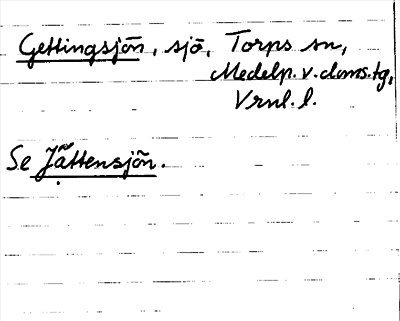 Gettingsjön, sjö, Torps sn,
Medelp. v. doms.tg,
Vrnl. l.
Se Jättensjön.